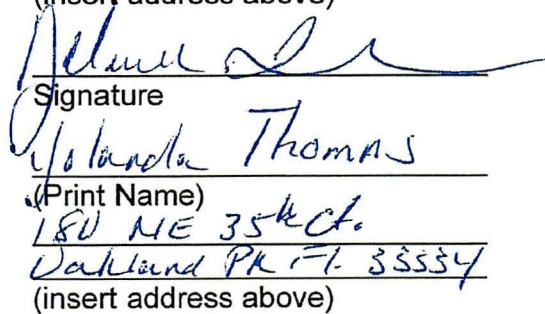 (insert address above)
Signature
Yolanda Thomas
(Print Name)
180 NE 35th Ct.
Oakland Pk Fl. 33334
(insert address above)